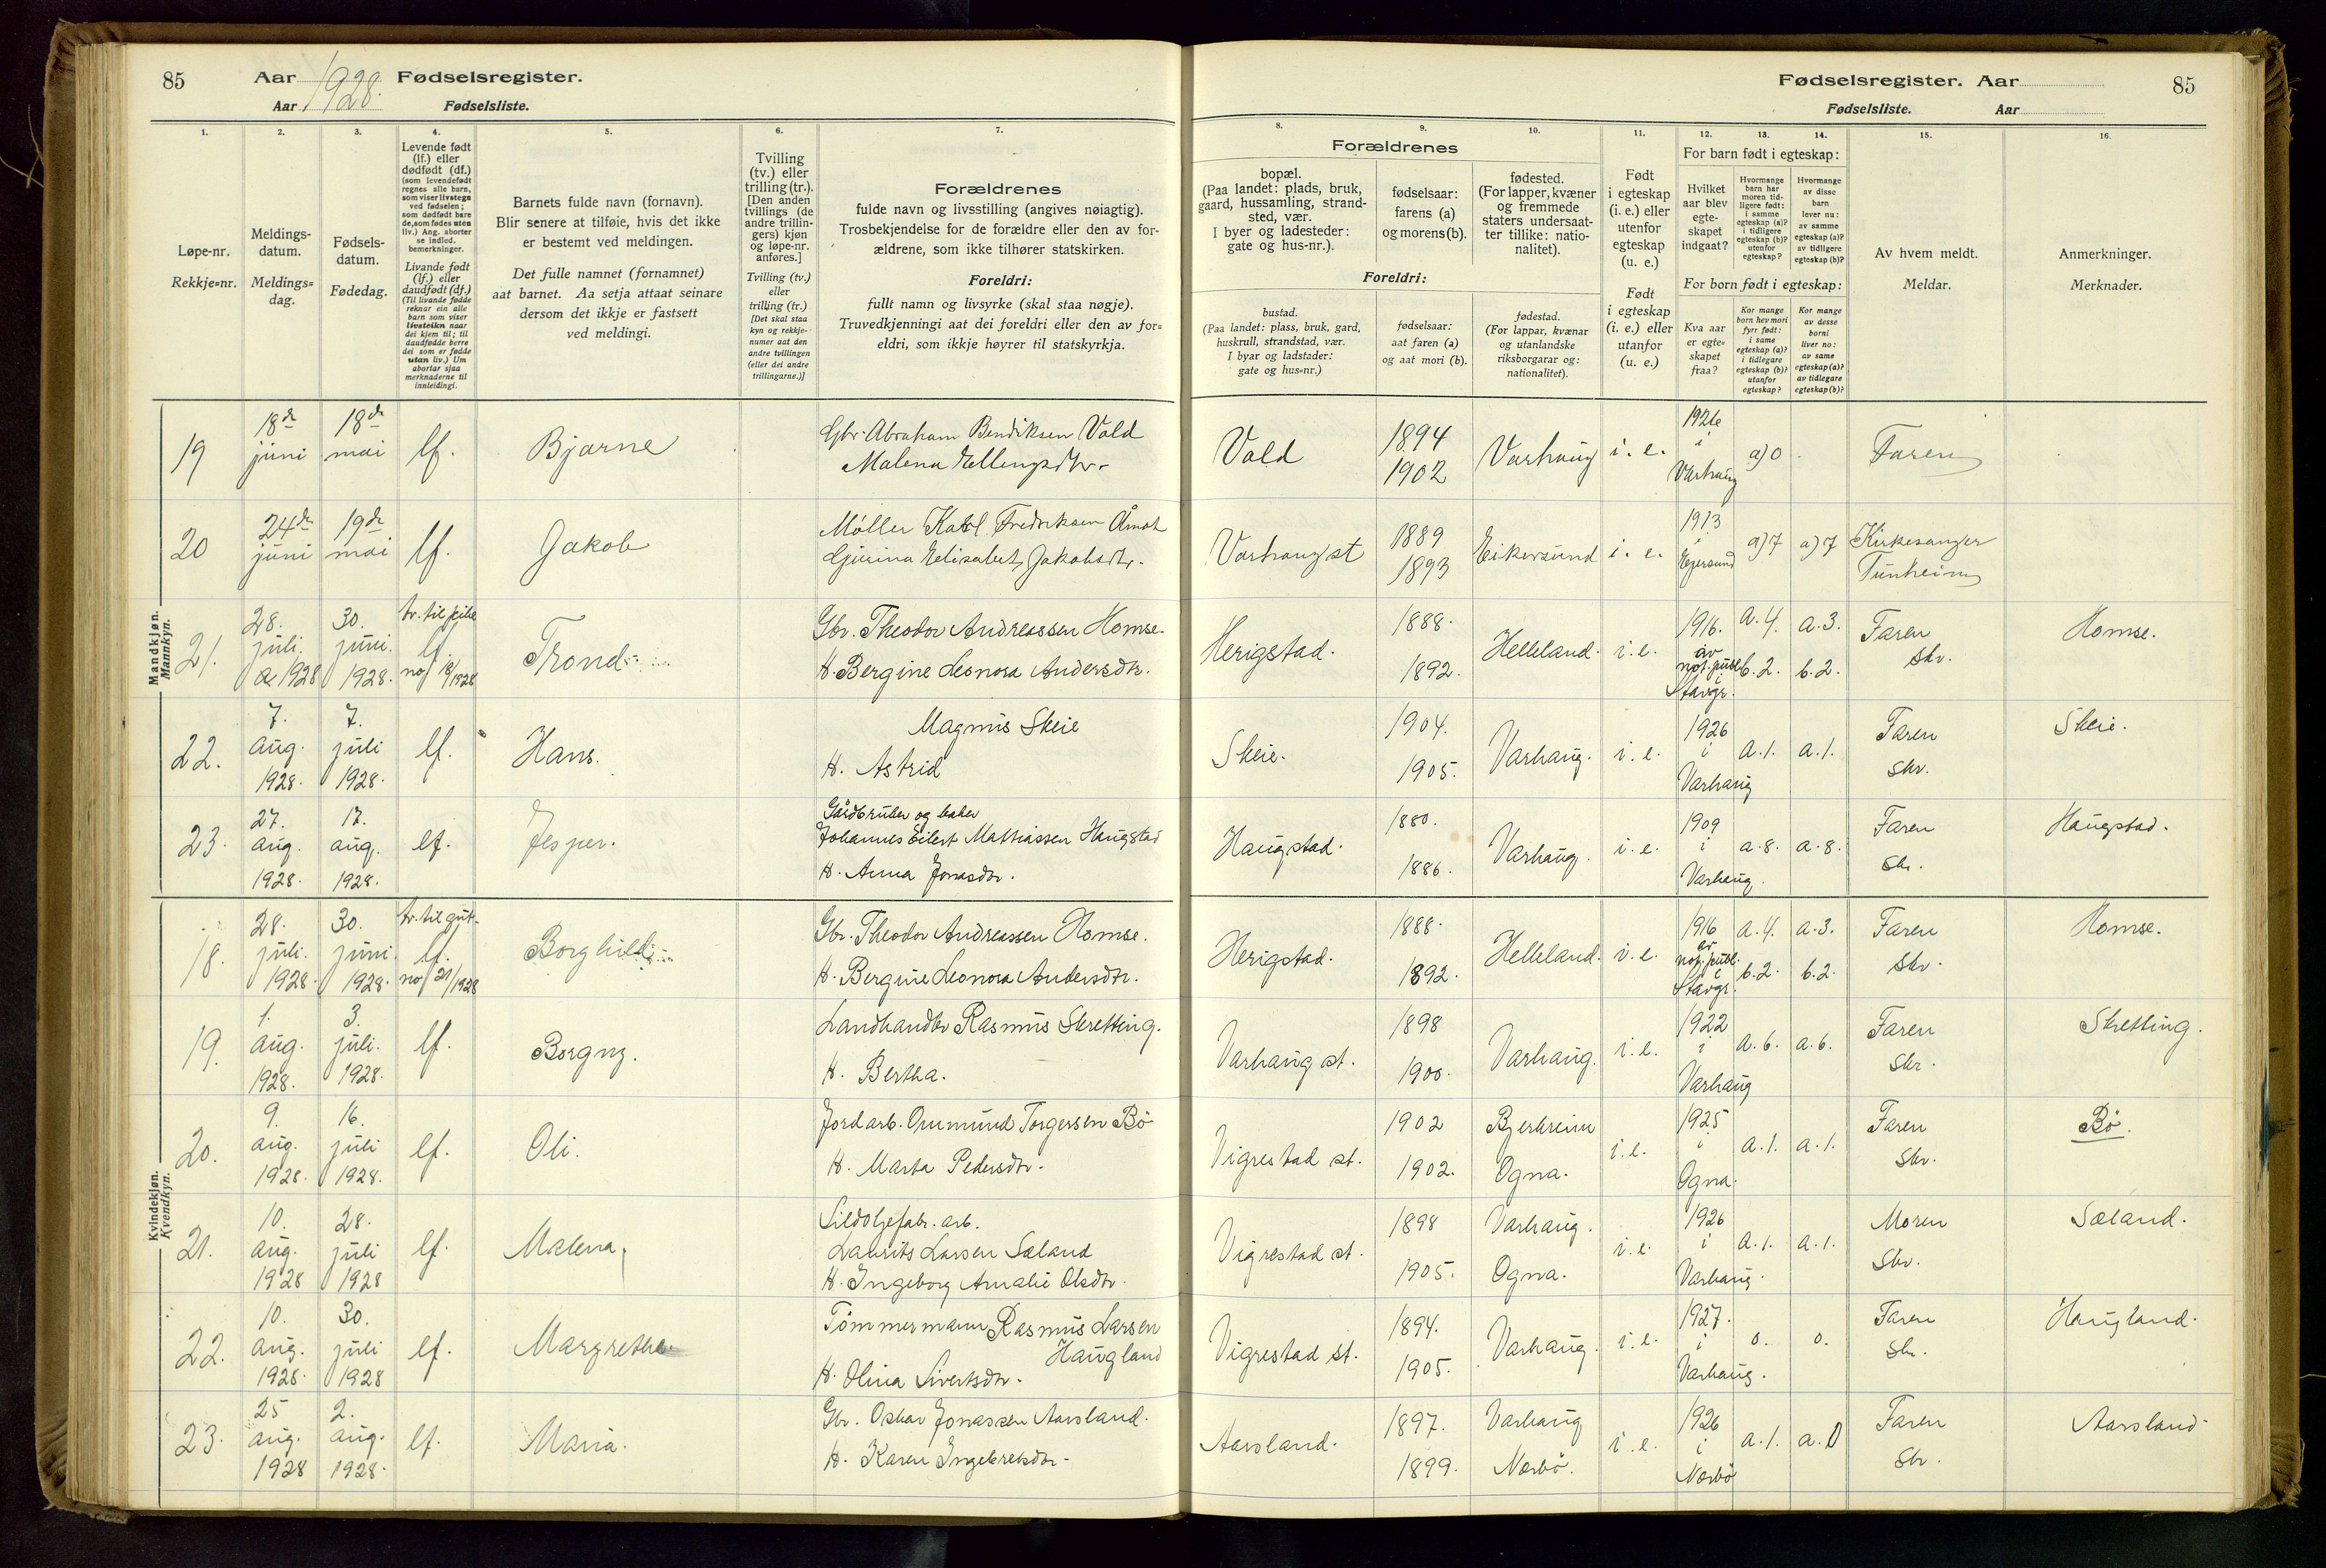 85 Aar 1928. Fødselsregister.
Aar Fødselsliste.
Fødselsregister. Aar 85
Fødselsliste. Aar
1. 2. 3. 4. 5. 6. 7.
Løpe-nr.
Rekkje=nr.
Meldings-
datum.
Meldings=
dag.
Fødsels-
datum.
Fødedag.
Levende født
(lf.) eller
dødfødt (df.)
(som levendefødt
regnes alle barn,
som viser livstegn
ved fødselen;
som dødfødt bare
de, som fødes uten
liv.) Ang. aborter
se indled.
bemerkninger.
Livande født
(lf.) eller
daudfødt (df.)
(Til livande fødde
reknar ein alle
barn som viser
livsteikn naar
dei kjem til; til
daudfødde berre
dei som er fødde
utan liv.) Um
abortar sjaa
merknaderne til
innleidingi.
Barnets fulde navn (fornavn).
Blir senere at tilføie, hvis det ikke
er bestemt ved meldingen.
Det fulle namnet (fornamnet)
aat barnet. Aa setja attaat seinare
dersom det ikkje er fastsett
ved meldingi.
Tvilling
(tv.) eller
trilling (tr.).
[Den anden
tvillings (de
andre trillin-
gers) kjøn
og løpe-nr.
anføres.]
Tvilling (tv.)
eller
trilling (tr.)
[Det skal staa
kyn og rekkje-
numer aat den
andre tvillingen
(eller dei andre
trillingarne.)]
Forældrenes
fulde navn og livsstilling (angives nøiagtig).
Trosbekjendelse for de forældre eller den av for-
ældrene, som ikke tilhører statskirken.
Foreldri:
fullt namn og livsyrke (skal staa nøgje).
Truvedkjenningi aat dei foreldri eller den av for=
eldri, som ikkje høyrer til statskyrkja.
8. 9. 10. 11. 12. 13. 14. 15. 16.
Forældrenes
bopæl.
(Paa landet: plads, bruk,
gaard, hussamling, strand-
sted, vær.
I byer og ladesteder:
gate og hus-nr.).
fødselsaar:
farens (a)
og morens (b).
fødested.
(For lapper, kvæner
og fremmede
staters undersaat-
ter tillike: natio-
nalitet).
Foreldri:
bustad.
(Paa landet: plass, bruk, gard,
huskrull, strandstad, vær.
I byar og ladstader:
gate og hus=nr.)
fødselsaar:
aat faren (a)
og aat mori (b).
fødestad.
(For lappar, kvænar
og utanlandske
riksborgarar og:
nationalitet).
Født
i egteskap
(i. e.) eller
utenfor
egteskap
(u. e.)
Født
i egteskap
(i. e.) eller
utanfor
(u. e.)
For barn født i egteskap:
Hvilket
aar blev
egte-
skapet
indgaat?
Hvormange
barn har
moren tid-
ligere født:
i samme
egteskap (a)?
i tidligere
egteskap (b)?
utenfor
egteskap?
Hvormange
av disse
barn
lever nu:
av samme
egteskap (a)?
av tidligere
egteskap (b)?
For born født i egteskap:
Kva aar
er egte=
skapet
fraa?
Kor mange
born hev mori
fyrr født:
i same
egteskap (a)?
i tidlegare
egteskap (b)?
utanfor
egteskap?
Kor mange
av desse
borni
liver no:
av same
egteskap (a)?
av tidlegare
egteskap (b)?
Av hvem meldt.
Meldar.
Anmerkninger.
Merknader.
Mandkjøn.
Mannkyn.
19 18de juni 18de mai lf. Bjarne Gbr. Abraham Bendiksen Vold
Malena Ellingsdtr. Vold 1894 1902 Varhaug i. e. 1926 i Varhaug a) 0 Faren
20 24de juni 19de mai lf. Jakob Møller Karl Fredriksen Åmot
Gjurina Elisabet Jakobsdtr. Varhaug st 1889 1893 Eikersund i. e. 1913 i Egersund a) 7 a) 7 Kirkesanger Tunheim
21. 28. juli 1928 30. juni. 1928. tv. til pike lf. no 18/1928 Trond Gbr. Theodor Andreassen Homse.
H. Bergine Leonora Andersdtr. Herigstad. 1888. 1892. Helleland. i. e. 1916. av not. publ. i Stavgr. a. 4. b. 2. a. 3. b. 2. Faren skr. Homse.
22. 7. aug. 1928. 7. juli 1928. lf. Hans. Magnus Skeie
H. Astrid Skeie. 1904. 1905. Varhaug. i. e. 1926 i Varhaug a. 1. a. 1. Faren skr. Skeie.
23. 27. aug. 1928. 17. aug. 1928. lf. Jesper. Gårdbruker og baker
Johannes Eilert Mathiassen Haugstad
H. Anna Jonasdtr. Haugstad. 1880. 1886. Varhaug. i. e. 1909 i Varhaug. a. 8. a. 8. Faren skr. Haugstad.
Kvindekjøn.
Kvendkyn.
18. 28. juli. 1928. 30. juni. 1928. tv. til gut lf. no 21/1928 Borghild Gbr. Theodor Andreassen Homse.
H. Bergine Leonora Andersdtr. Herigstad. 1888. 1892. Helleland. i. e. 1916 av not. publ. i Stavgr. a. 4. b. 2. a. 3. b. 2. Faren skr. Homse.
19. 1. aug. 1928. 3. juli. 1928. lf. Borgny. Landhandler Rasmus Skretting.
H. Bertha. Varhaug st. 1898 1900. Varhaug. i. e. 1922 i Varhaug a. 6. a. 6. Faren skr. Skretting.
20. 9. aug. 1928. 16. juli 1928. lf. Oli. Jordarb. Ommund Torgersen Bö
H. Marta Pedersdtr. Vigrestad st. 1902 1902. Bjerkreim Ogna. i. e. 1925 i Ogna. a. 1. a. 1. Faren skr. Bö.
21. 10. aug. 1928 28. juli 1928 lf. Malena Sildoljefabr. arb.
Laurits Larsen Sæland
H. Ingeborg Amalie Olsdtr. Vigrestad st. 1898 1905. Varhaug. Ogna. i. e. 1926 i Varhaug. a. 1. a. 1. Moren skr. Sæland.
22. 10. aug. 1928. 30. juli 1928 lf. Margrethe Tömmermann Rasmus Larsen
Haugland
H. Olina Sivertsdtr. Vigrestad st. 1894. 1905. Varhaug. i. e. 1927. i Varhaug. 0. 0. Faren skr. Haugland.
23. 25 aug. 1928 2. aug. 1928. lf. Maria. Gbr. Oskar Jonassen Aarsland.
H. Karen Ingebretsdtr. Aarsland. 1897. 1899. Varhaug Nærbö. i. e. 1926 i Nærbö a. 1. a. 0 Faren skr. Aarsland